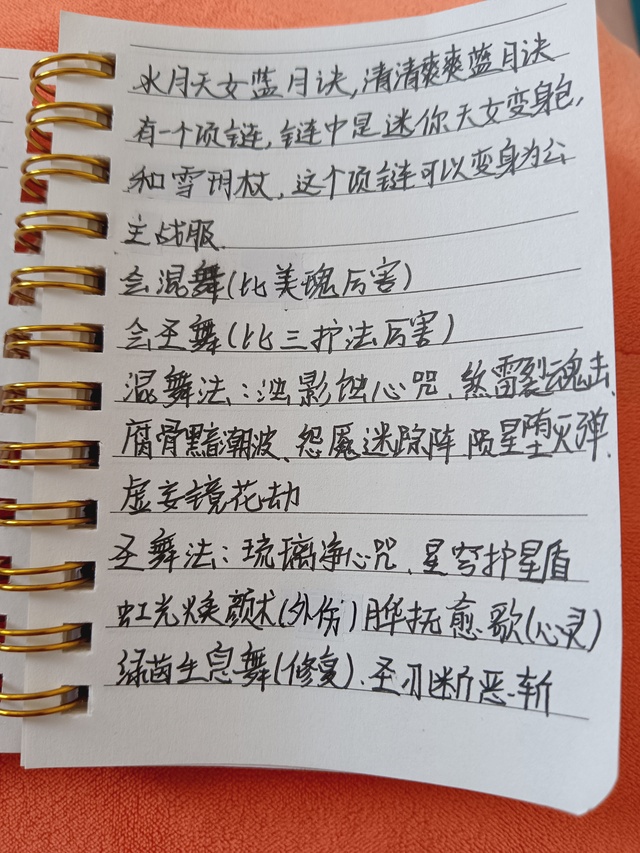 水月天女蓝月诀,清清爽爽蓝月诀
有一个项链,链中是迷你天女变身包,
和雪玥杖,这个项链可以变身为公
主战服.
会混舞(比美瑰厉害)
会圣舞(比三护法厉害)
混舞法:浊影蚀心咒、煞雷裂魂击、
腐骨黯潮波、怨魇迷踪阵 陨星堕灭弹、
虚妄镜花劫
圣舞法:琉璃净心咒、星穹护星盾
虹光焕颜术(外伤)抚愈歌(心灵)
绿茵生息舞(修复)、圣刃断恶斩